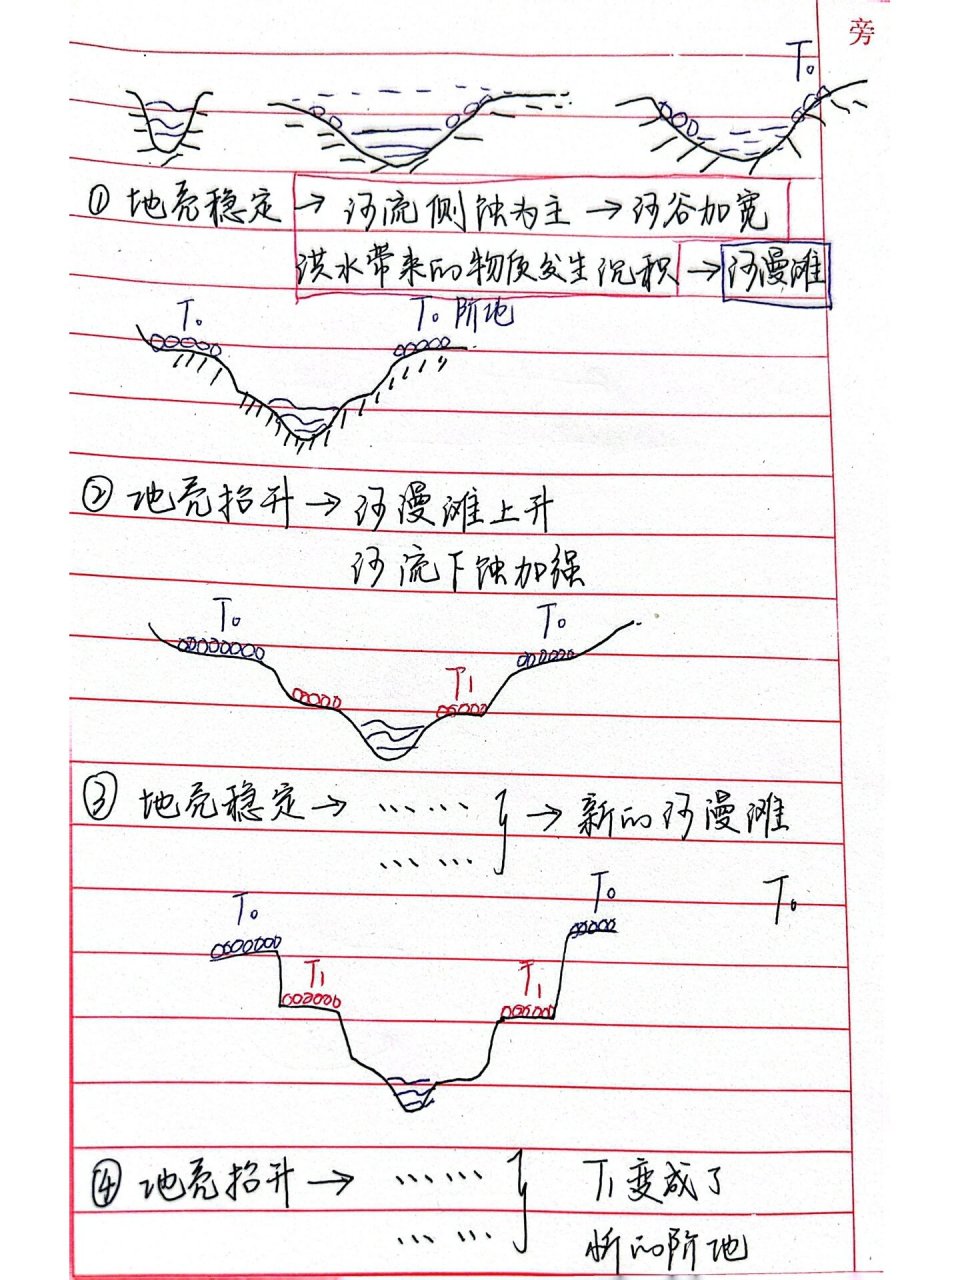 旁
T₀
①地壳稳定→河流侧蚀为主→河谷加宽
洪水带来的物质发生沉积→河漫滩
T₀ T₀阶地
②地壳抬升→河漫滩上升
河流下蚀加强
T₀ T₀
T₁
③地壳稳定→…… }→新的河漫滩
……
T₀ T₀ T₀
T₁ T₁
④地壳抬升→…… } T₁变成了
…… 新的阶地